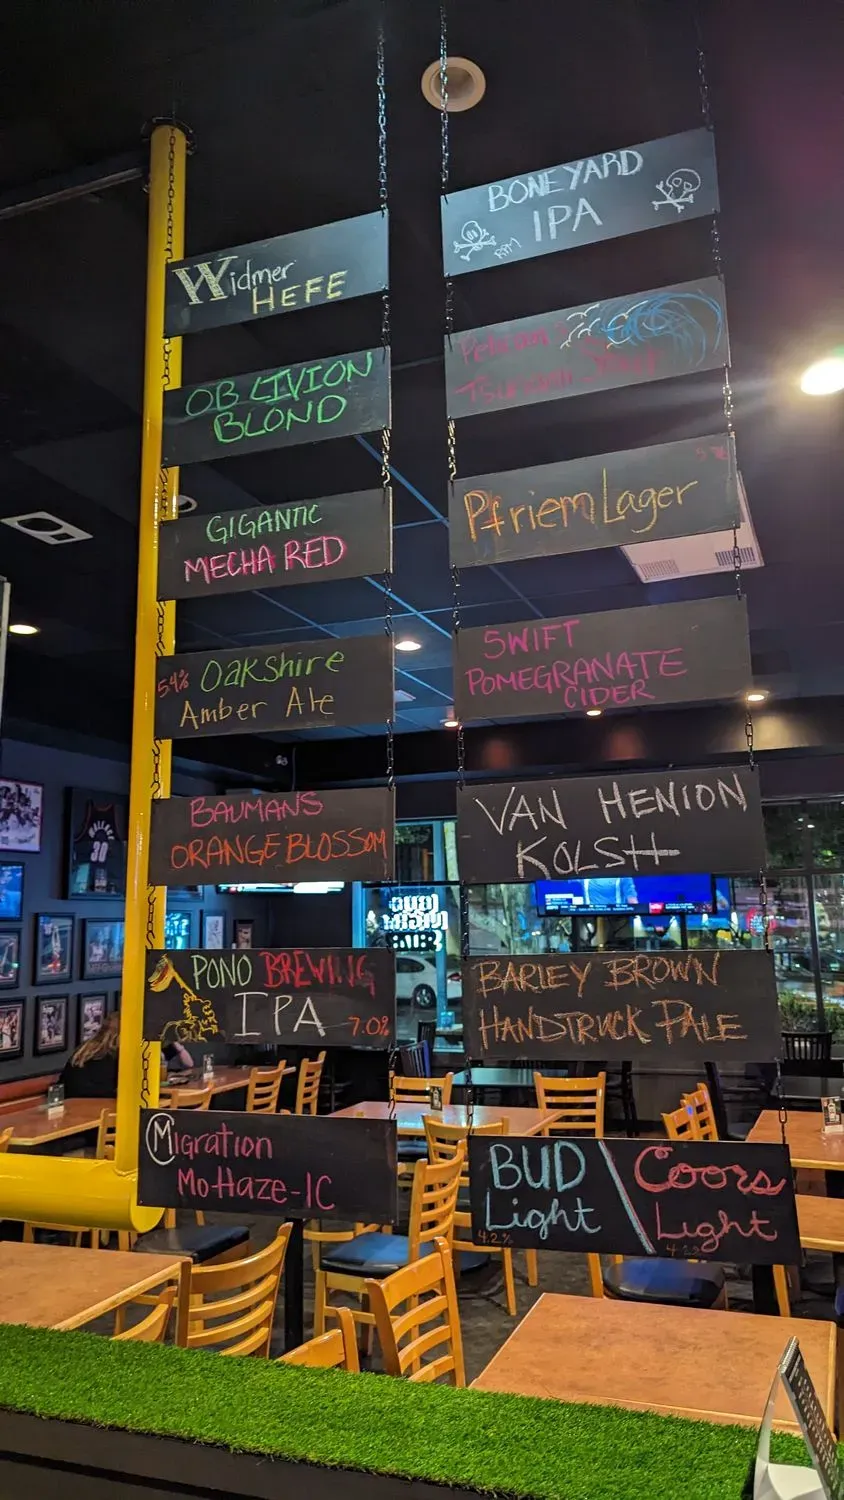 Widmer
HEFE
OBLIVION
BLOND
GIGANTIC
MECHA RED
5.4% Oakshire
Amber Ale
BAUMANS
ORANGE BLOSSOM
PONO BREWING
IPA 7.0%
Migration
MoHaze-IC
BONEYARD
IPA
RPM
Pelican's
Tsunami Stout
Pfriem Lager
SWIFT
POMEGRANATE
CIDER
VAN HENION
KOLSH
BARLEY BROWN
HANDTRUCK PALE
BUD \ Coors
Light Light
4.2% 4.2%
30